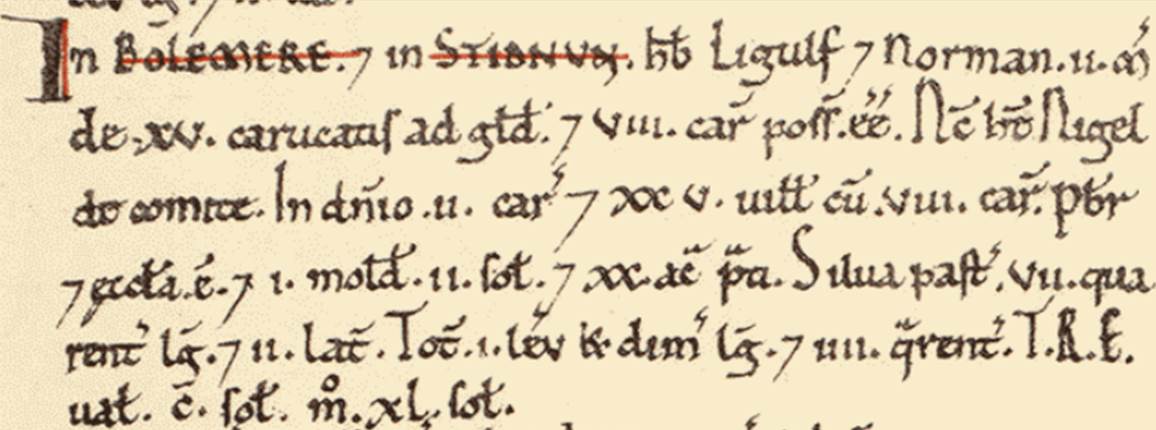 In BOLEMERE. ⁊ in STIDNUN. hb̄ Ligulf ⁊ Norman .ii. m̄
de .xv. carucatis ad gld̄. ⁊ viii. car̄ poss̄. ēē. Nc̄ ht̄ Nigel
de comite. In dn̄io .ii. car̄ ⁊ xxv. uill̄ cū .viii. car̄. pb̄r
⁊ eccl̄a. ē. ⁊ i. mold̄ .ii. sol̄. ⁊ xx. ac̄ p̄ti. Silua past̄. vii. qua
rent̄ lḡ. ⁊ ii. lat̄. Tot̄ .i. lev̄ & dim̄ lḡ. ⁊ iiii. q̄rent̄. T.R.E.
ual̄. c̄. sol̄. m̊. xl. sol̄.